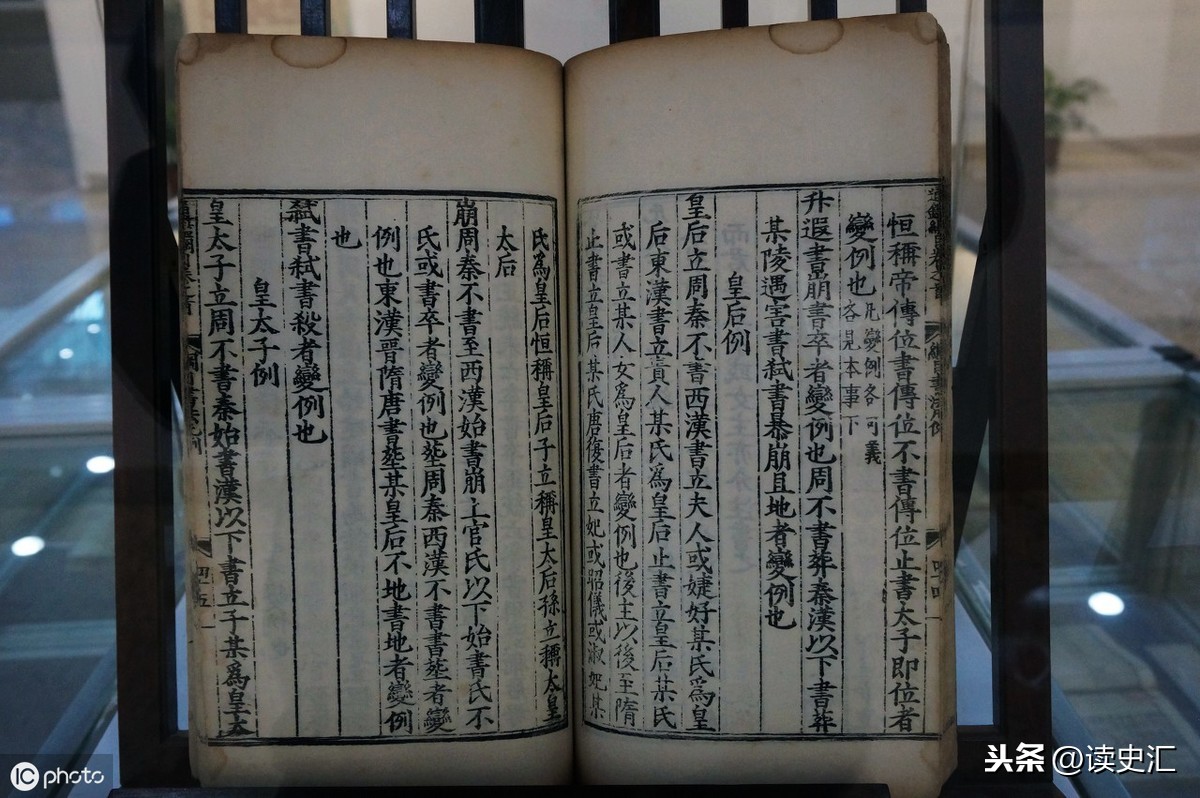 恒稱帝傳位書傳位不書傳位止書太子即位者
變例也凡變例各可義
各見本事下
升遐書崩書卒者變例也周不書葬秦漢以下書葬
某陵遇害書弒書暴崩且地者變例也
皇后例
皇后立周秦不書西漢書立夫人或婕妤某氏爲皇
后東漢書立貴人某氏爲皇后止書立皇后某氏
或書立某人女爲皇后者變例也後主以後至隋
止書立皇后某氏唐復書立妃或昭儀或淑妃某
氏爲皇后恒稱皇后子立稱皇太后孫立稱太皇
太后
崩周秦不書至西漢始書崩上官氏以下始書氏不
氏或書卒者變例也塟周秦西漢不書書塟者變
例也東漢晉隋唐書塟某皇后不地書地者變例
也
弒書弒書殺者變例也
皇太子例
皇太子立周不書秦始書漢以下書立子某爲皇太
四五
iC photo
头条 @读史汇